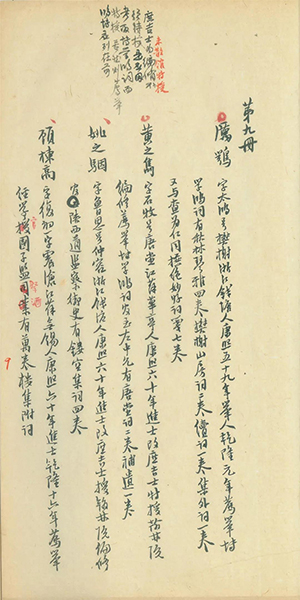 第九冊
厲鶚 字太鴻號樊榭浙江錢塘人康熙五十九年舉人乾隆元年薦舉博
學鴻詞有秋林琴雅四卷樊榭山房詞二卷續詞一卷集外詞一卷
又與查為仁同撰絕妙好詞箋七卷
黃之雋 字石牧號𢈪堂江蘇華亭人康熙六十年進士改庶吉士特授翰林院
編修薦舉博學鴻詞官至左中允有𢈪堂詞二卷補遺一卷
姚之駰 字魯思號仲容浙江錢塘人康熙六十年進士改庶吉士授翰林院編修
官陝西道監察御史有鏤空集詞四卷
顧棟高 字復初字震滄江蘇無錫人康熙六十年進士乾隆十六年薦舉
經學授國子監司業有萬卷樓集附詞
庶吉士為
未散館特授
鴻詞
9